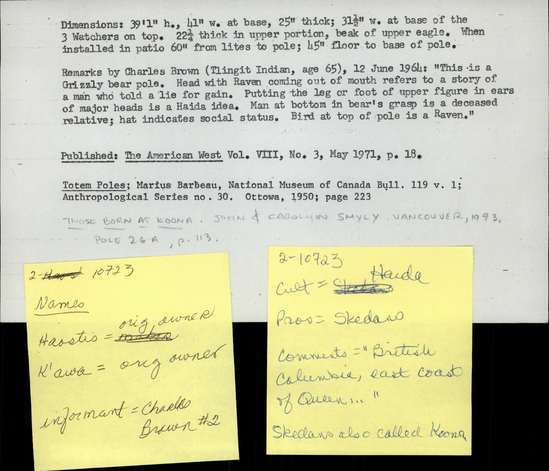 Dimensions: 39'1" h., 41" w. at base, 25" thick; 31½" w. at base of the
3 Watchers on top. 22¼ thick in upper portion, beak of upper eagle. When
installed in patio 60" from lites to pole; 45" floor to base of pole.
Remarks by Charles Brown (Tlingit Indian, age 65), 12 June 1964: "This is a
Grizzly bear pole. Head with Raven coming out of mouth refers to a story of
a man who told a lie for gain. Putting the leg or foot of upper figure in ears
of major heads is a Haida idea. Man at bottom in bear's grasp is a deceased
relative; hat indicates social status. Bird at top of pole is a Raven."
Published: The American West Vol. VIII, No. 3, May 1971, p. 18.
Totem Poles; Marius Barbeau, National Museum of Canada Bull. 119 v. 1;
Anthropological Series no. 30. Ottowa, 1950; page 223
THOSE BORN AT KOONA. JOHN & CAROLYN SMYLY. VANCOUVER, 1973.
POLE 26A, p. 113.
2-10723
Names
Haostis = orig owner
K'awa = orig owner
informant = Charles
Brown #2
2-10723
Cult = Haida
Prov = Skedans
Comments = "British
Columbia, east coast
of Queen... "
Skedans also called Koona